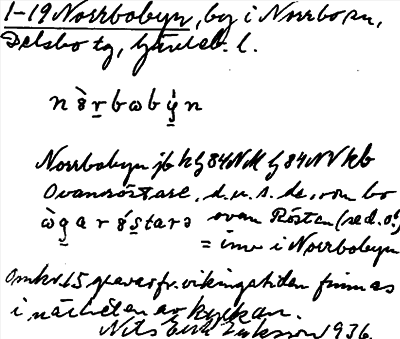 1-19 Norrbobyn, by i Norrbo sn,
Delsbo tg, Gävleb. l.
n ò̱r b ω b ẏ̱ n
Norrbobyn jb h 84NM 84NV kb
Ovanröstare, d.v.s. de, som bo
ovan Rösten (se d. o.)
= inv i Norrbobyn
Omkr. 15 gravar fr. vikingatiden finnas
i närheten av kyrkan.
Nils Erik Eriksson 1936.